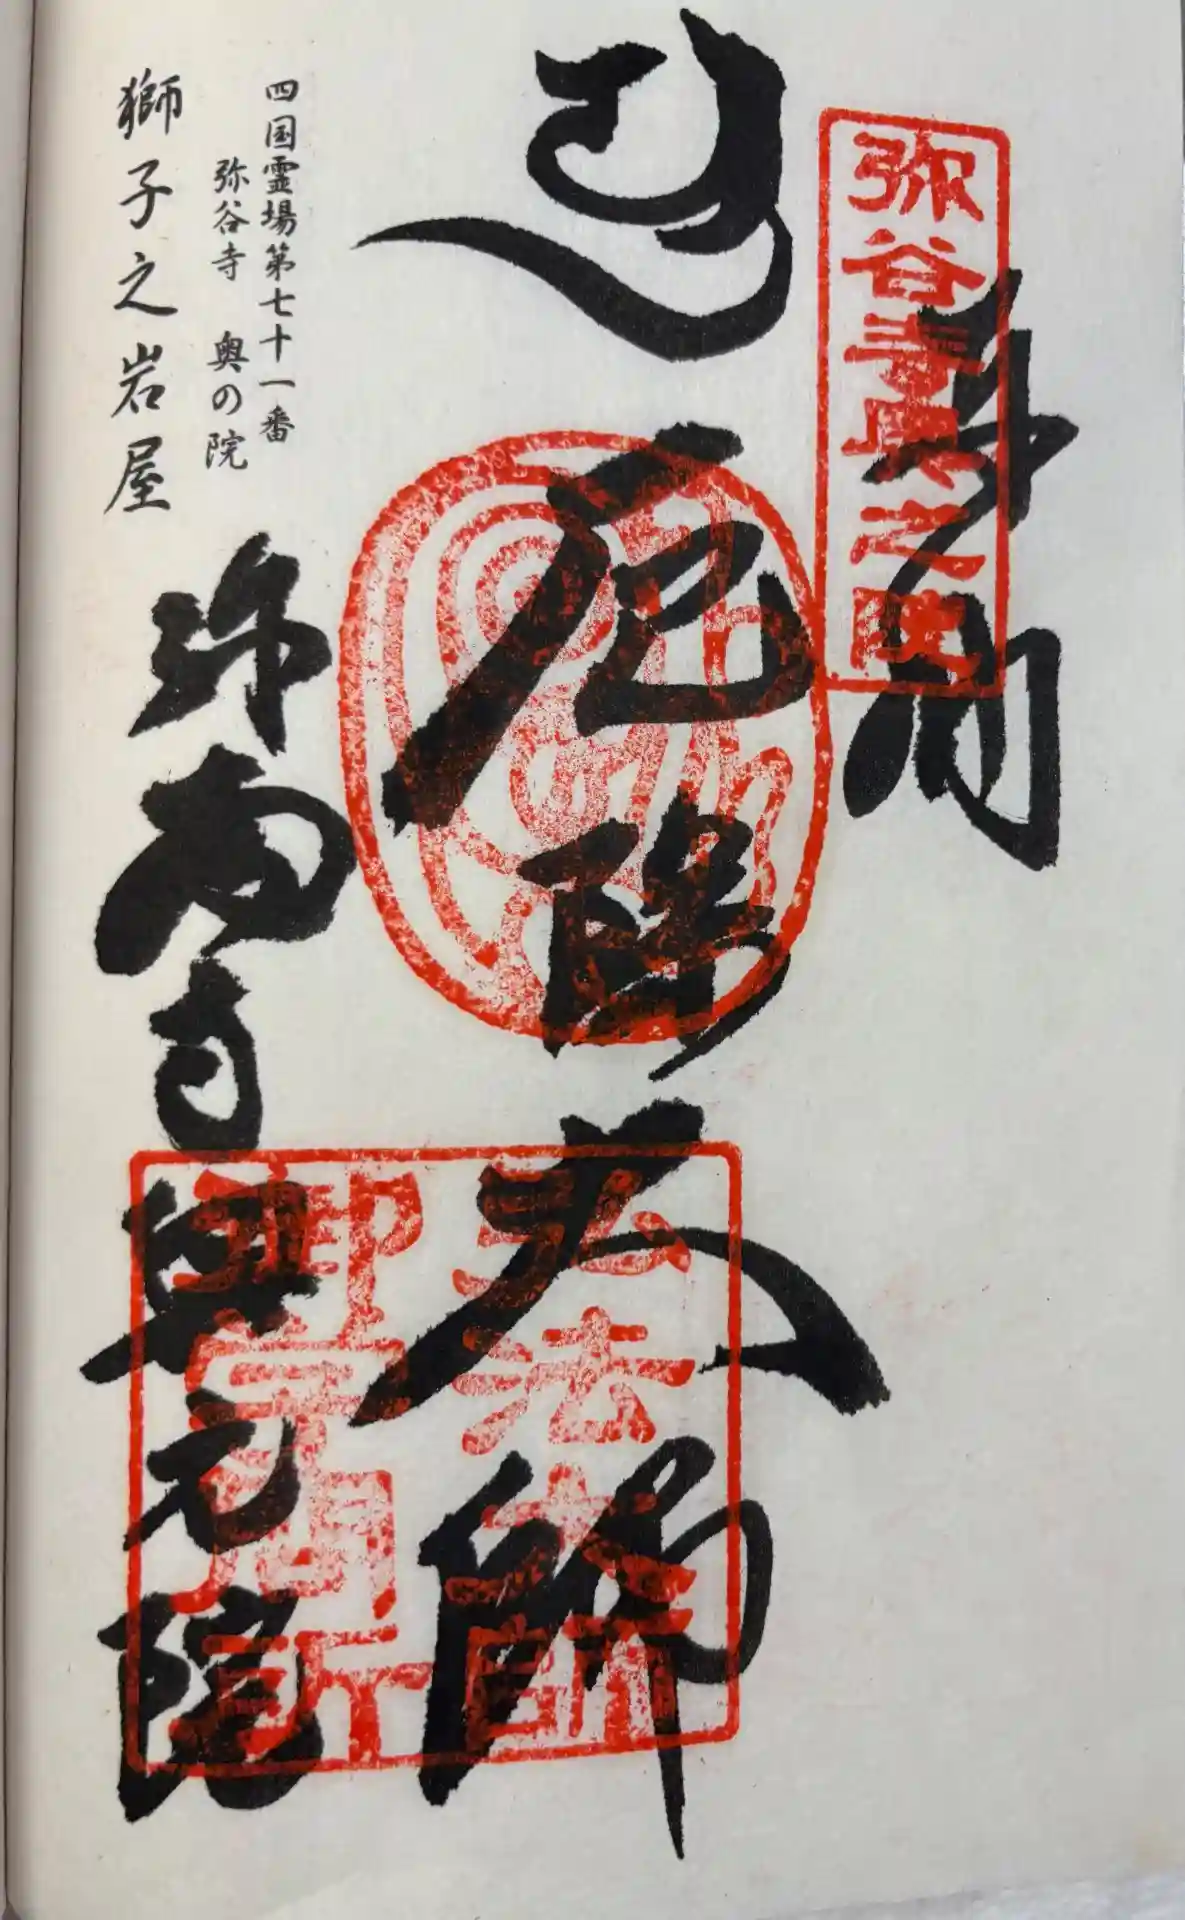 弥谷寺奥之院
奉納
厄除大師
弘法大師
御学問所
弥谷寺
奥之院
四国霊場第七十一番
弥谷寺 奥の院
獅子之岩屋